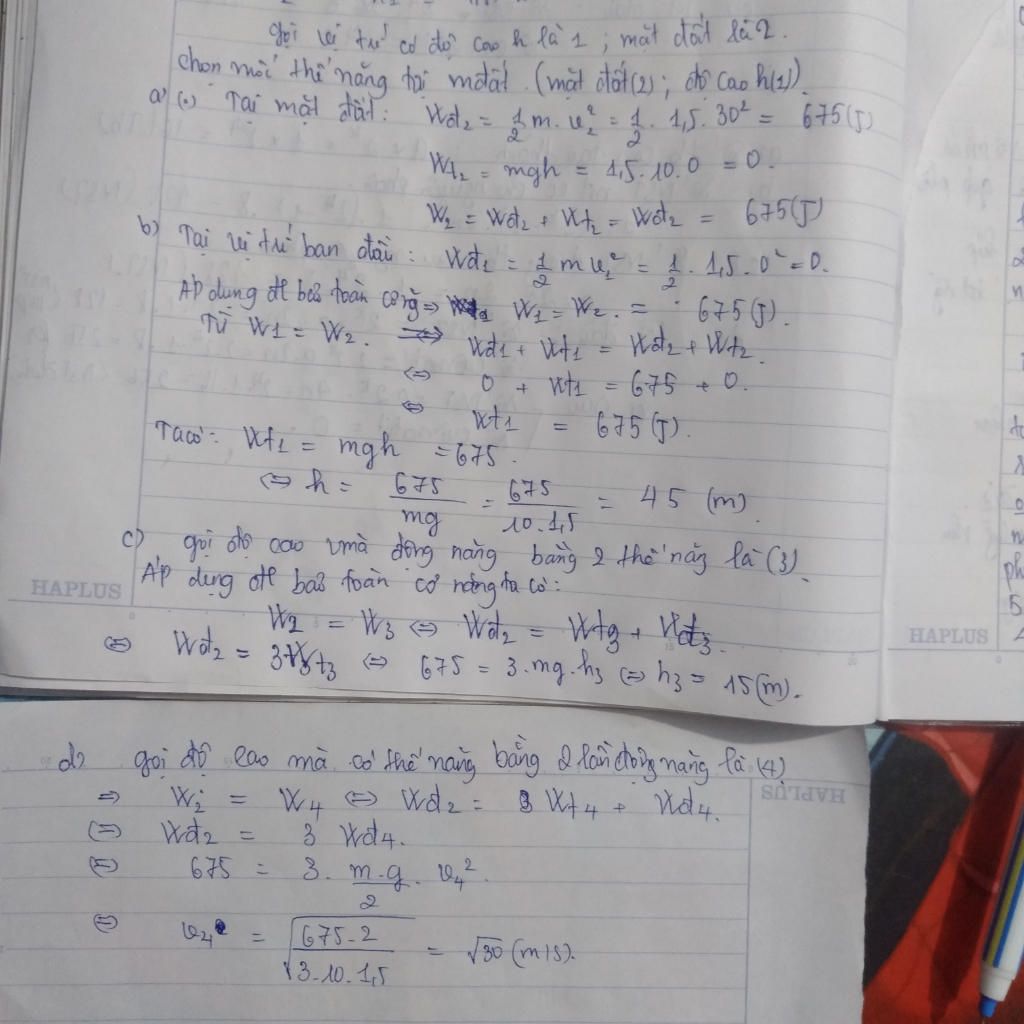 gọi vị trí có độ cao h là 1 ; mặt đất là 2.
chọn mốc thế năng tại mđất. (mặt đất(2) ; độ cao h(1)).
a) (.) Tại mặt đất : Wđ2 = 1/2 m. v2² = 1/2 . 1,5. 30² = 675(J)
Wt2 = mgh = 1,5.10.0 = 0.
W2 = Wđ2 + Wt2 = Wđ2 = 675(J)
b) Tại vị trí ban đầu : Wđ1 = 1/2 m v1² = 1/2 . 1,5.0² = 0.
AD dụng đl bảo toàn cơ năg => W1 = W2. = 675(J).
Từ W1 = W2. => Wđ1 + Wt1 = Wđ2 + Wt2.
<=> 0 + Wt1 = 675 + 0.
<=> Wt1 = 675(J).
Ta có : Wt1 = mgh = 675.
<=> h = 675/mg = 675/10.1,5 = 45 (m).
c) gọi độ cao mà động năng bằng 2 thế năg là (3).
Áp dụng đl bảo toàn cơ năng ta có :
W2 = W3 <=> Wđ2 = Wt3 + Wđ3.
<=> Wđ2 = 3Wt3 <=> 675 = 3.mg.h3 <=> h3 = 15(m).
HAPLUS
HAPLUS
d) gọi độ cao mà có thế năng bằng 2 lần động năng là (4)
=> W2 = W4 <=> Wđ2 = Wt4 + Wđ4.
<=> Wđ2 = 3 Wđ4.
<=> 675 = 3. m.g/2 . v4².
<=> v4 = √(675.2/3.10.1,5) = √30 (m/s).
HAPLUS